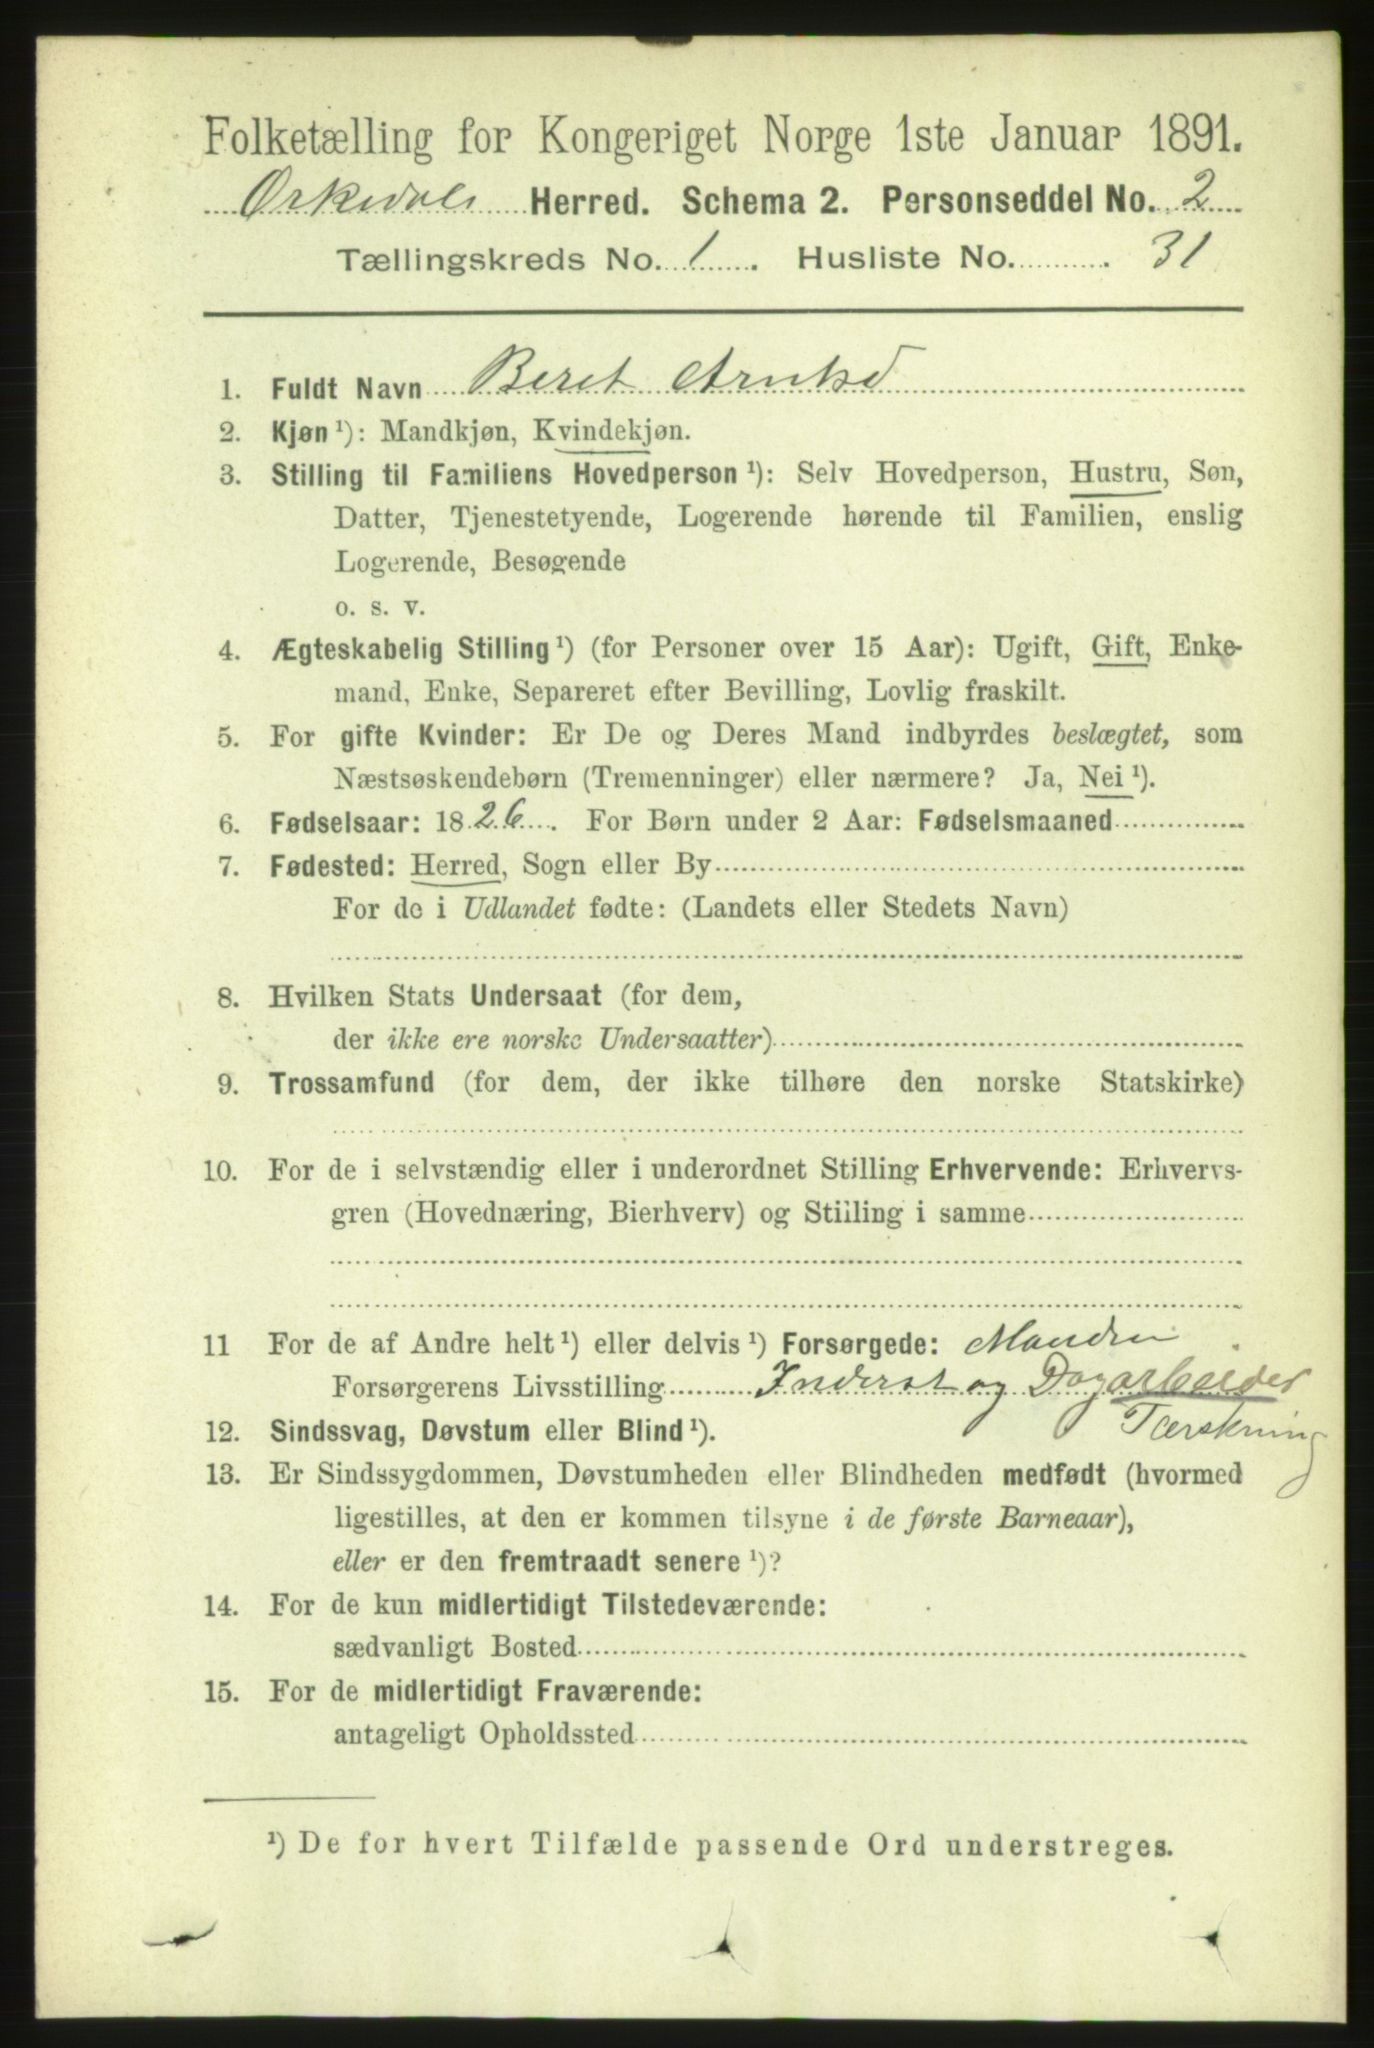 Folketælling for Kongeriget Norge 1ste Januar 1891.
Orkedals Herred. Schema 2. Personseddel No. 2
Tællingskreds No. 1. Husliste No. 31
1. Fuldt Navn Beret Arntsd
2. Kjøn ¹): Mandkjøn, Kvindekjøn.
3. Stilling til Familiens Hovedperson ¹): Selv Hovedperson, Hustru, Søn,
Datter, Tjenestetyende, Logerende hørende til Familien, enslig
Logerende, Besøgende
o. s. v.
4. Ægteskabelig Stilling ¹) (for Personer over 15 Aar): Ugift, Gift, Enke-
mand, Enke, Separeret efter Bevilling, Lovlig fraskilt.
5. For gifte Kvinder: Er De og Deres Mand indbyrdes beslægtet, som
Næstsøskendebørn (Tremenninger) eller nærmere? Ja, Nei ¹).
6. Fødselsaar: 1826. For Børn under 2 Aar: Fødselsmaaned
7. Fødested: Herred, Sogn eller By
For de i Udlandet fødte: (Landets eller Stedets Navn)
8. Hvilken Stats Undersaat (for dem,
der ikke ere norske Undersaatter)
9. Trossamfund (for dem, der ikke tilhøre den norske Statskirke)
10. For de i selvstændig eller i underordnet Stilling Erhvervende: Erhvervs-
gren (Hovednæring, Bierhverv) og Stilling i samme
11 For de af Andre helt ¹) eller delvis ¹) Forsørgede: Manden
Forsørgerens Livsstilling Inderst og Dagarbeider
Tærskning
12. Sindssvag, Døvstum eller Blind ¹).
13. Er Sindssygdommen, Døvstumheden eller Blindheden medfødt (hvormed
ligestilles, at den er kommen tilsyne i de første Barneaar),
eller er den fremtraadt senere ¹)?
14. For de kun midlertidigt Tilstedeværende:
sædvanligt Bosted
15. For de midlertidigt Fraværende:
antageligt Opholdssted
¹) De for hvert Tilfælde passende Ord understreges.